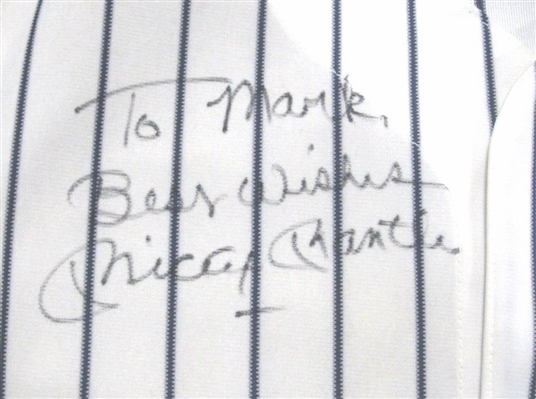 To Mark,
Best Wishes
Mickey Mantle